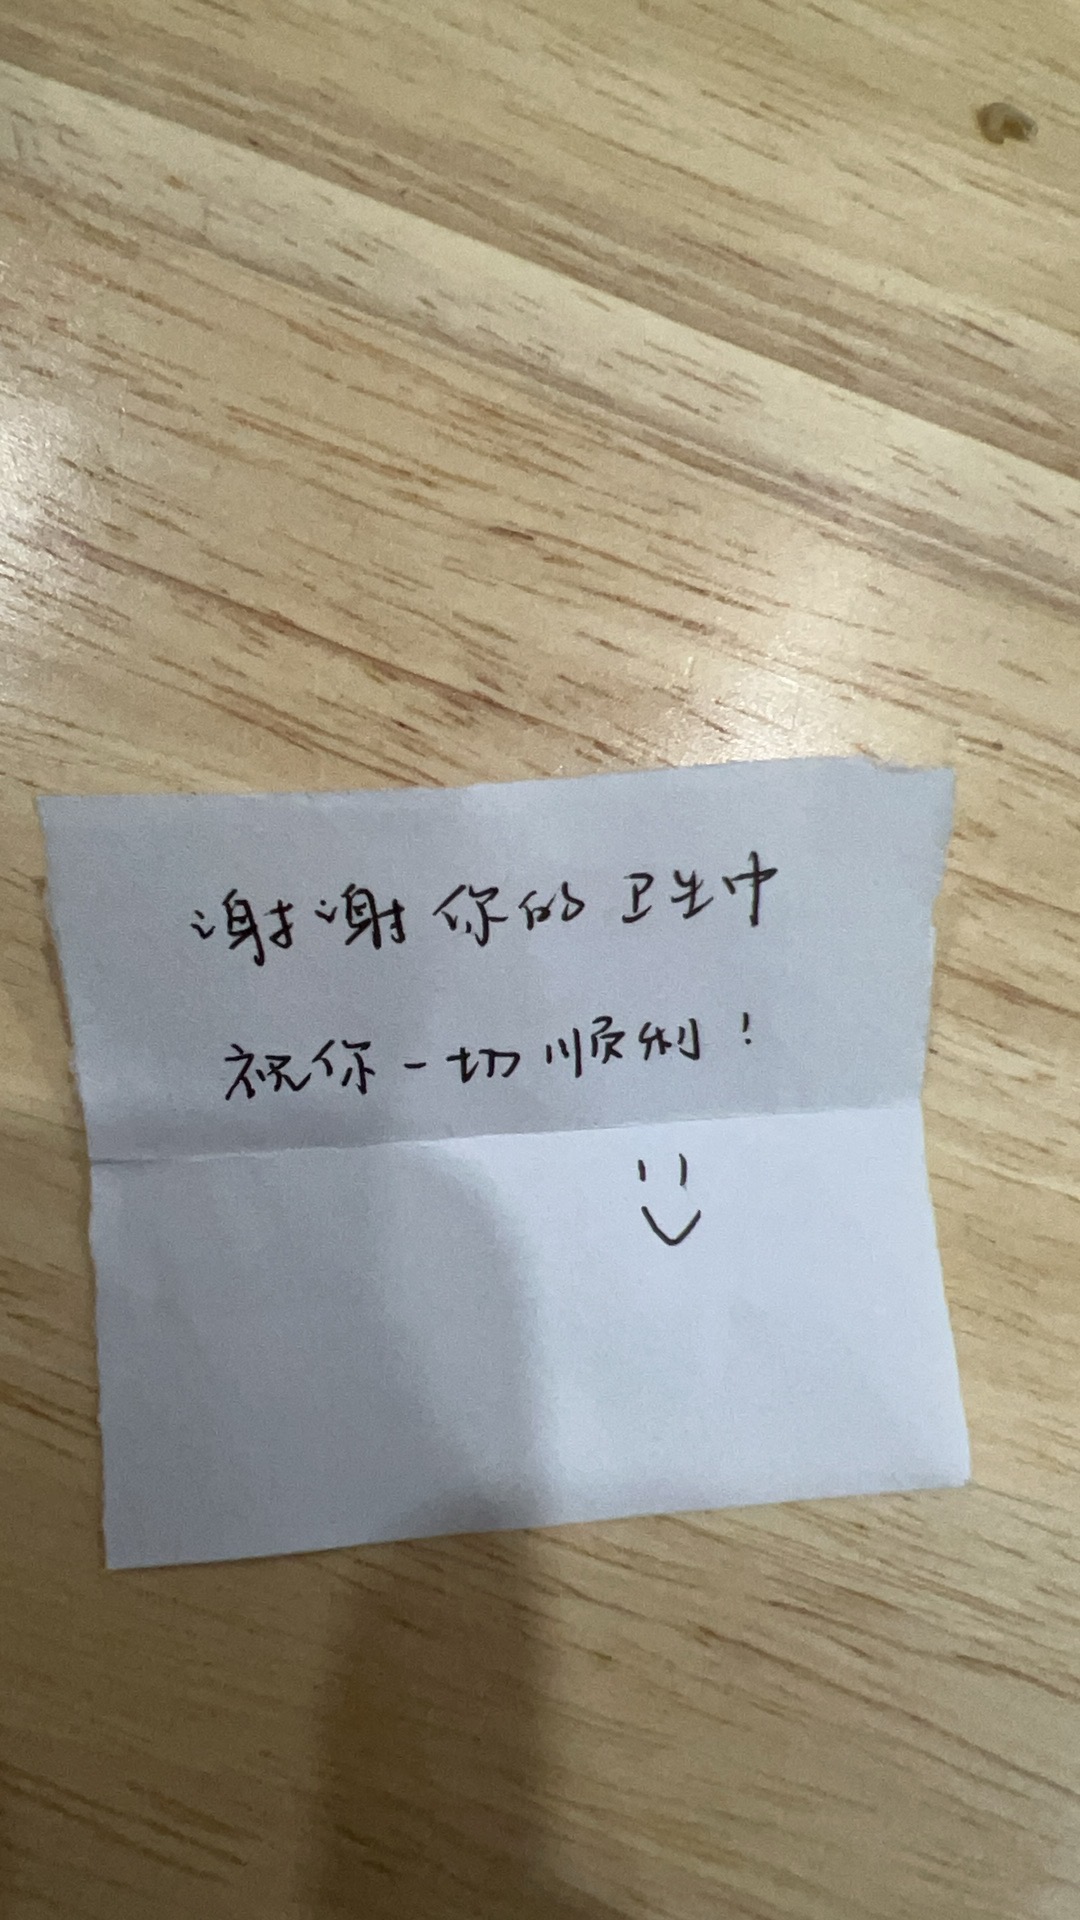 谢谢你的卫生巾
祝你一切顺利！